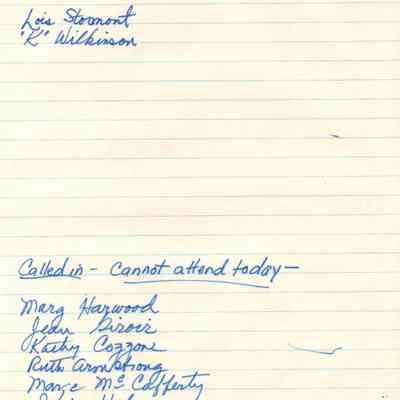 Lois Stormont
"K" Wilkinson
Called in - Cannot attend today -
Marg Harwood
Jean Giroir
Kathy Cozzone
Ruth Armstrong
Marge Mc Cafferty